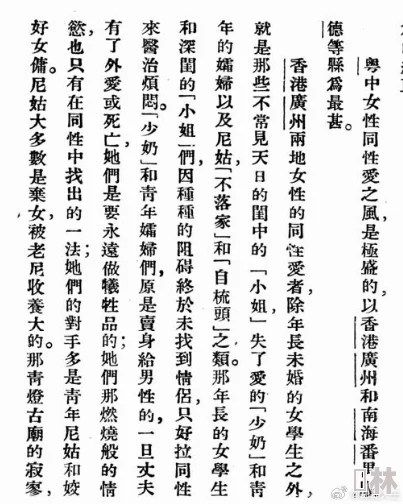 粤中女性同性愛之風,是極盛的,以香港廣州和南海番
德等縣爲最甚。
香港廣州兩地女性的同性愛者,除年長未婚的女學生之外,
就是那些不常見天日的閨中的「小姐」失了愛的「少奶」和青
年的孀婦以及尼姑「不落家」和「自梳頭」之類。那年長的女學生
和深閨的「小姐」們,因種種的阻碍終於未找到情侶,只好拉同性
來醫治煩悶。「少奶」和青年孀婦們,原是賣身給男性的,一旦丈夫
有了外愛或死亡,她們是要永遠做犧牲品的;她們那燃燒般的情
慾,也只有在同性中找出的一法;她們的對手多是青年尼姑和姣
好女傭。尼姑大多數是棄女,被老尼收養大的。那青燈古廟的寂寥,
林